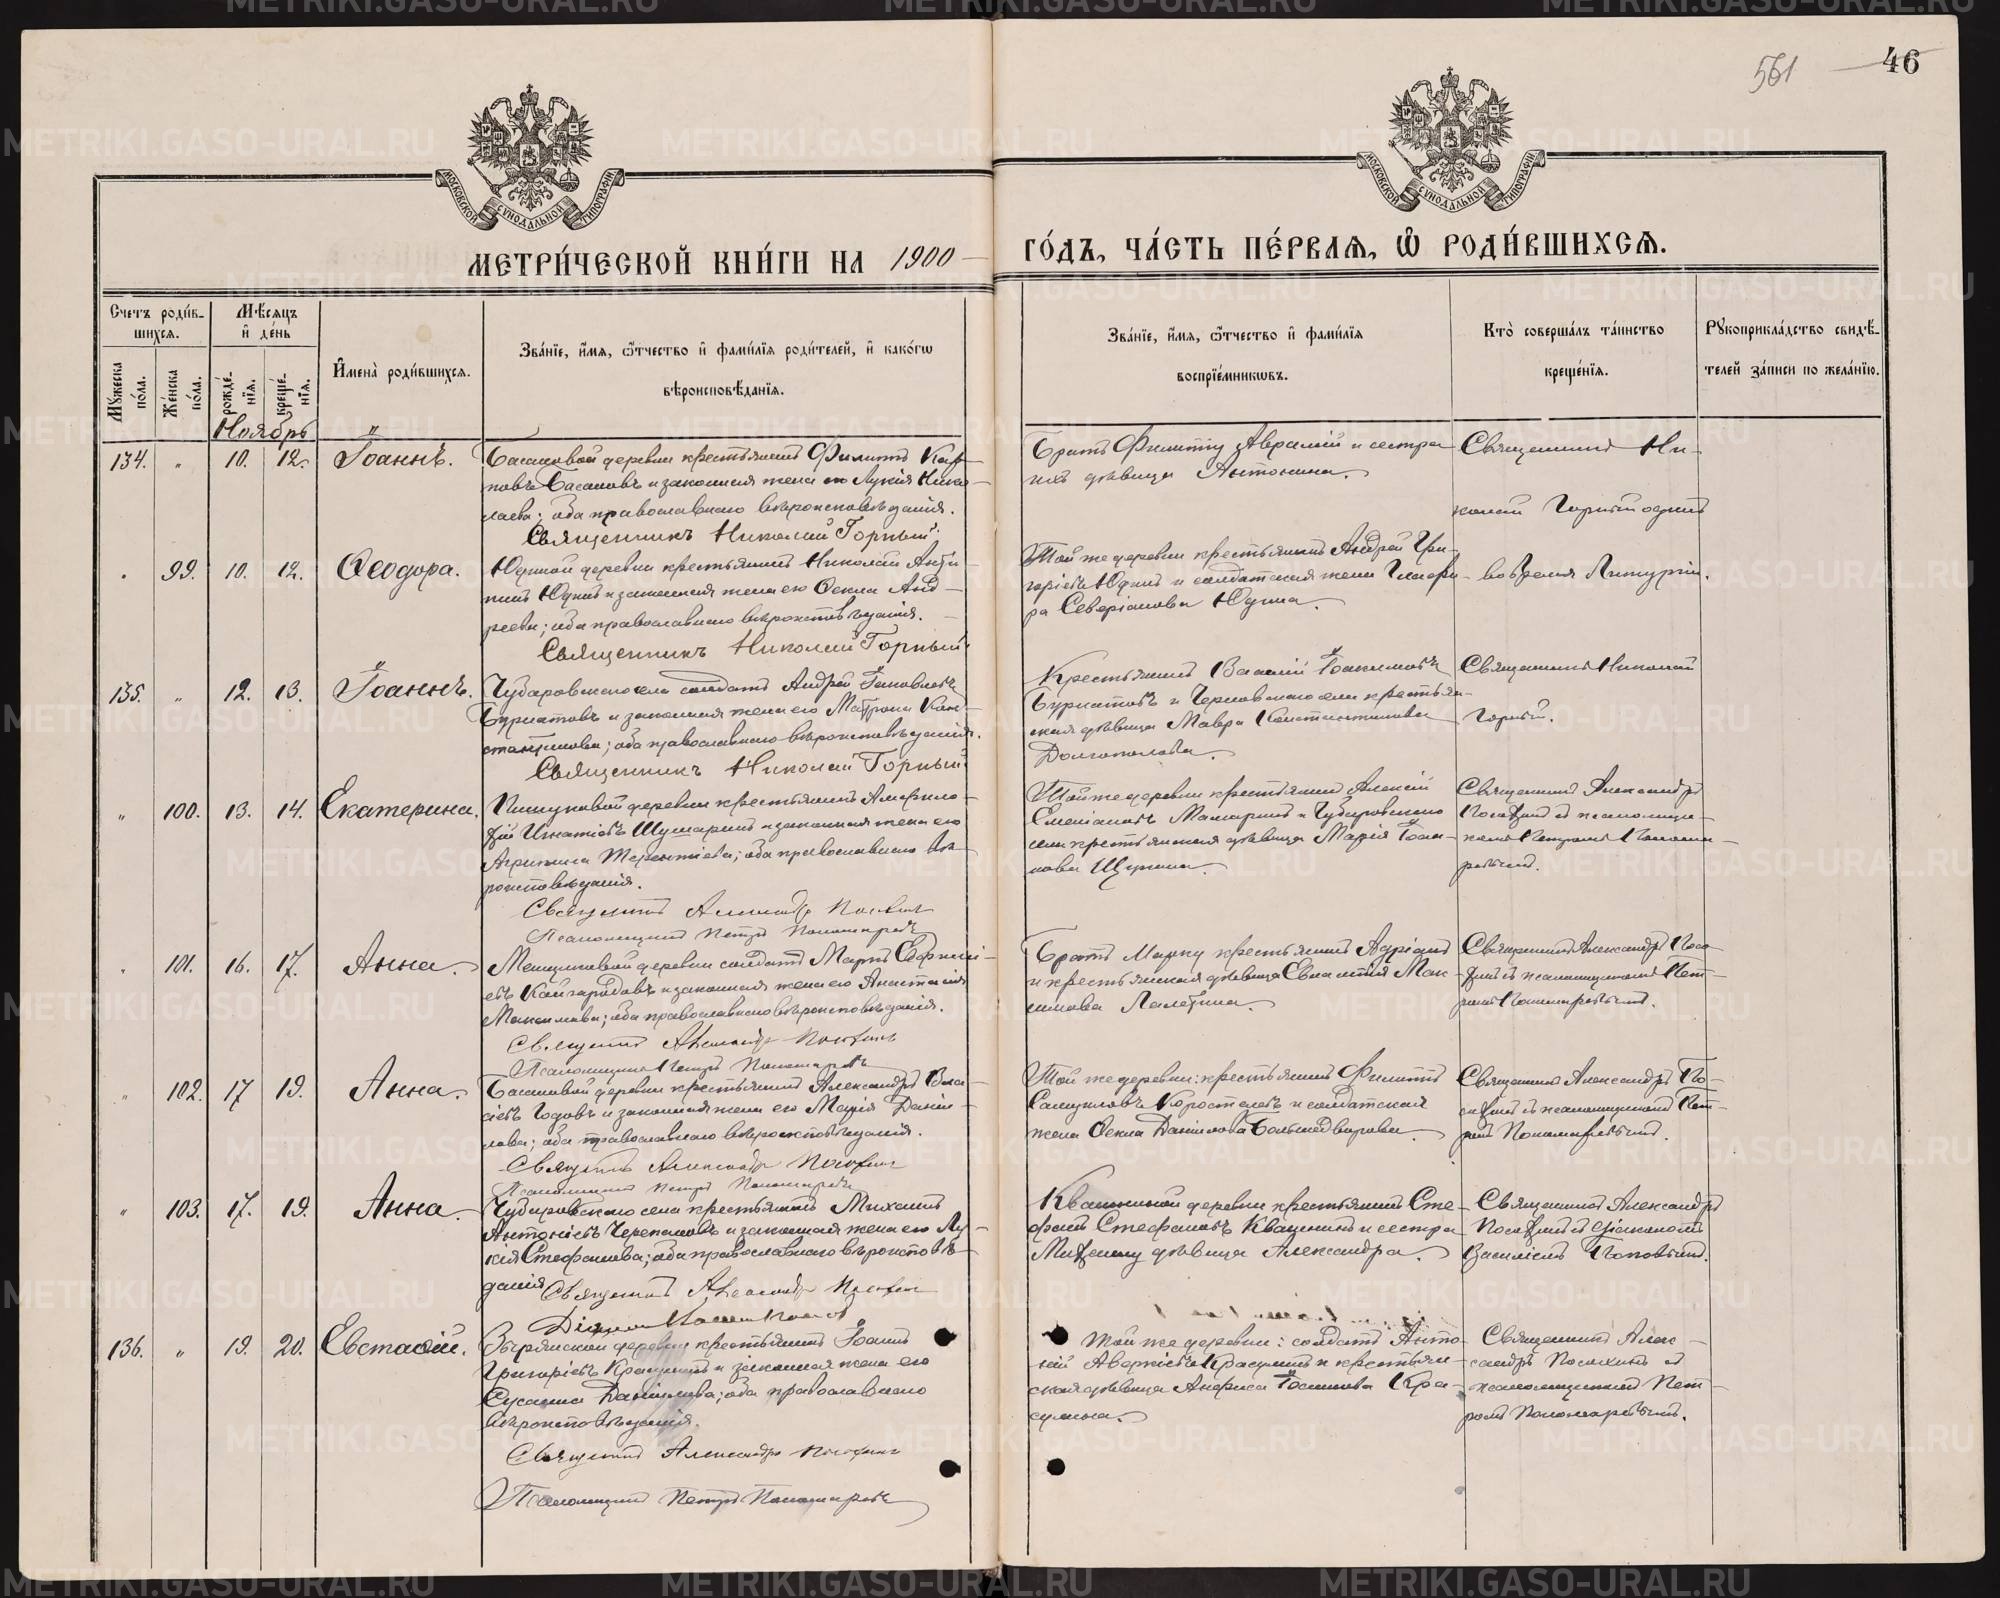 561 46
МОСКОВСКОЙ СѴНОДАЛЬНОЙ ТИПОГРАФІИ
МОСКОВСКОЙ СѴНОДАЛЬНОЙ ТИПОГРАФІИ
МЕТРИ́ЧЕСКОЙ КНИ́ГИ НА 1900 ГО́ДЪ, ЧА́СТЬ ПЕ́РВАѦ, Ѡ҆ РОДИ́ВШИХСѦ.
Счетъ роди́вшихсѧ.
Мꙋжеска по́ла.
Же́нска по́ла.
Мѣ́сѧцъ и҆ де́нь
рожде́нїѧ.
креще́нїѧ.
И҆мена̀ роди́вшихсѧ.
Зва́нїе, и҆́мѧ, ѻ҆́тчество и҆ фами́лїѧ роди́телей, и҆ како́гѡ вѣроисповѣ́данїѧ.
Зва́нїе, и҆́мѧ, ѻ҆́тчество и҆ фами́лїѧ воспрїе́мникѡвъ.
Кто̀ соверша́лъ та́инство креще́нїѧ.
Рꙋкоприкла́дство свидѣ́телей за́писи по жела́нїю.
Ноябрь
134. " 10. 12. Іоаннъ.
Басановой деревни крестьянинъ Филиппъ Кар-
повъ Басановъ и законная жена его Лукія Нико-
лаева; оба православнаго вѣроисповѣданія.
Священникъ Николай Горный.
Братъ Филиппу Аврамій и сестра
ихъ дѣвица Антонина.
Священникъ Ни-
колай Горный одинъ
во время Литургіи.
" 99. 10. 12. Ѳеодора.
Юдиной деревни крестьянинъ Николай Анти-
пинъ Юдинъ и законная жена его Ѳекла Анд-
реева; оба православнаго вѣроисповѣданія.
Священникъ Николай Горный.
Той же деревни крестьянинъ Андрей Гри-
горіевъ Юдинъ и солдатская жена Глафи-
ра Северіанова Юдина.
135. " 12. 13. Іоаннъ.
Чубаровскаго села солдатъ Андрей Іаковлевъ
Бурматовъ и законная жена его Матрона Кон-
стантинова; оба православнаго вѣроисповѣданія.
Священникъ Николай Горный.
Крестьянинъ Василій Іоакимовъ
Бурматовъ и Черновскаго села крестьян-
ская дѣвица Мавра Константинова
Долгополова.
Священникъ Николай
Горный.
" 100. 13. 14. Екатерина.
деревни крестьянинъ Амфило-
хій Игнатіевъ Шушаринъ и законная жена его
Агрипина Терентіева; оба православнаго вѣ-
роисповѣданія.
Священникъ Александръ
Псаломщикъ Петръ Пономаревъ
Той же деревни крестьянинъ Алексій
Емеліановъ и Чубаровскаго
села крестьянская дѣвица Марія Іоан-
нова Щукина.
Священникъ Александръ
съ псаломщи-
комъ Петромъ Понома-
ревымъ.
" 101. 16. 17. Анна.
деревни солдатъ Маркъ
Кайгородовъ и законная жена его Анастасія
Максимова; оба православнаго вѣроисповѣданія.
Священникъ Александръ
Псаломщикъ Петръ Пономаревъ
Братъ Марку крестьянинъ Адріанъ
и крестьянская дѣвица Мак-
симова Лалетина.
Священникъ Александръ
съ псаломщикомъ Пет-
ромъ Пономаревымъ.
" 102. 17 19. Анна.
Басановой деревни крестьянинъ Александръ Влас-
іевъ Годовъ и законная жена его Марія Даніи-
лова; оба православнаго вѣроисповѣданія.
Священникъ Александръ
Псаломщикъ Петръ Пономаревъ
Той же деревни: крестьянинъ Филиппъ
Самуиловъ Коростелевъ и солдатская
жена Ѳекла Даніилова Большедворова.
Священникъ Александръ
съ псаломщикомъ Пет-
ромъ Пономаревымъ.
" 103. 17. 19. Анна.
Чубаровскаго села крестьянинъ Михаилъ
Антоніевъ Черепановъ и законная жена его Лу-
кія Стефанова; оба православнаго вѣроисповѣ-
данія.
Священникъ Александръ
Діаконъ
Квашниной деревни крестьянинъ Сте-
фанъ Стефановъ Квашнинъ и сестра
Михаилу дѣвица Александра.
Священникъ Александръ
съ діакономъ
Василіемъ Поповымъ.
136. " 19. 20. Евстафій.
Зырянской деревни крестьянинъ Іоаннъ
Григоріевъ Красулинъ и законная жена его
Сусанна Даніилова; оба православнаго
вѣроисповѣданія.
Священникъ Александръ
Псаломщикъ Петръ Пономаревъ
Той же деревни: солдатъ Анто-
ній Аверкіевъ Красулинъ и крестьян-
ская дѣвица Анфиса Іоаннова Кра-
сулина.
Священникъ Алек-
сандръ съ
псаломщикомъ Пет-
ромъ Пономаревымъ.
METRIKI.GASO-URAL.RU